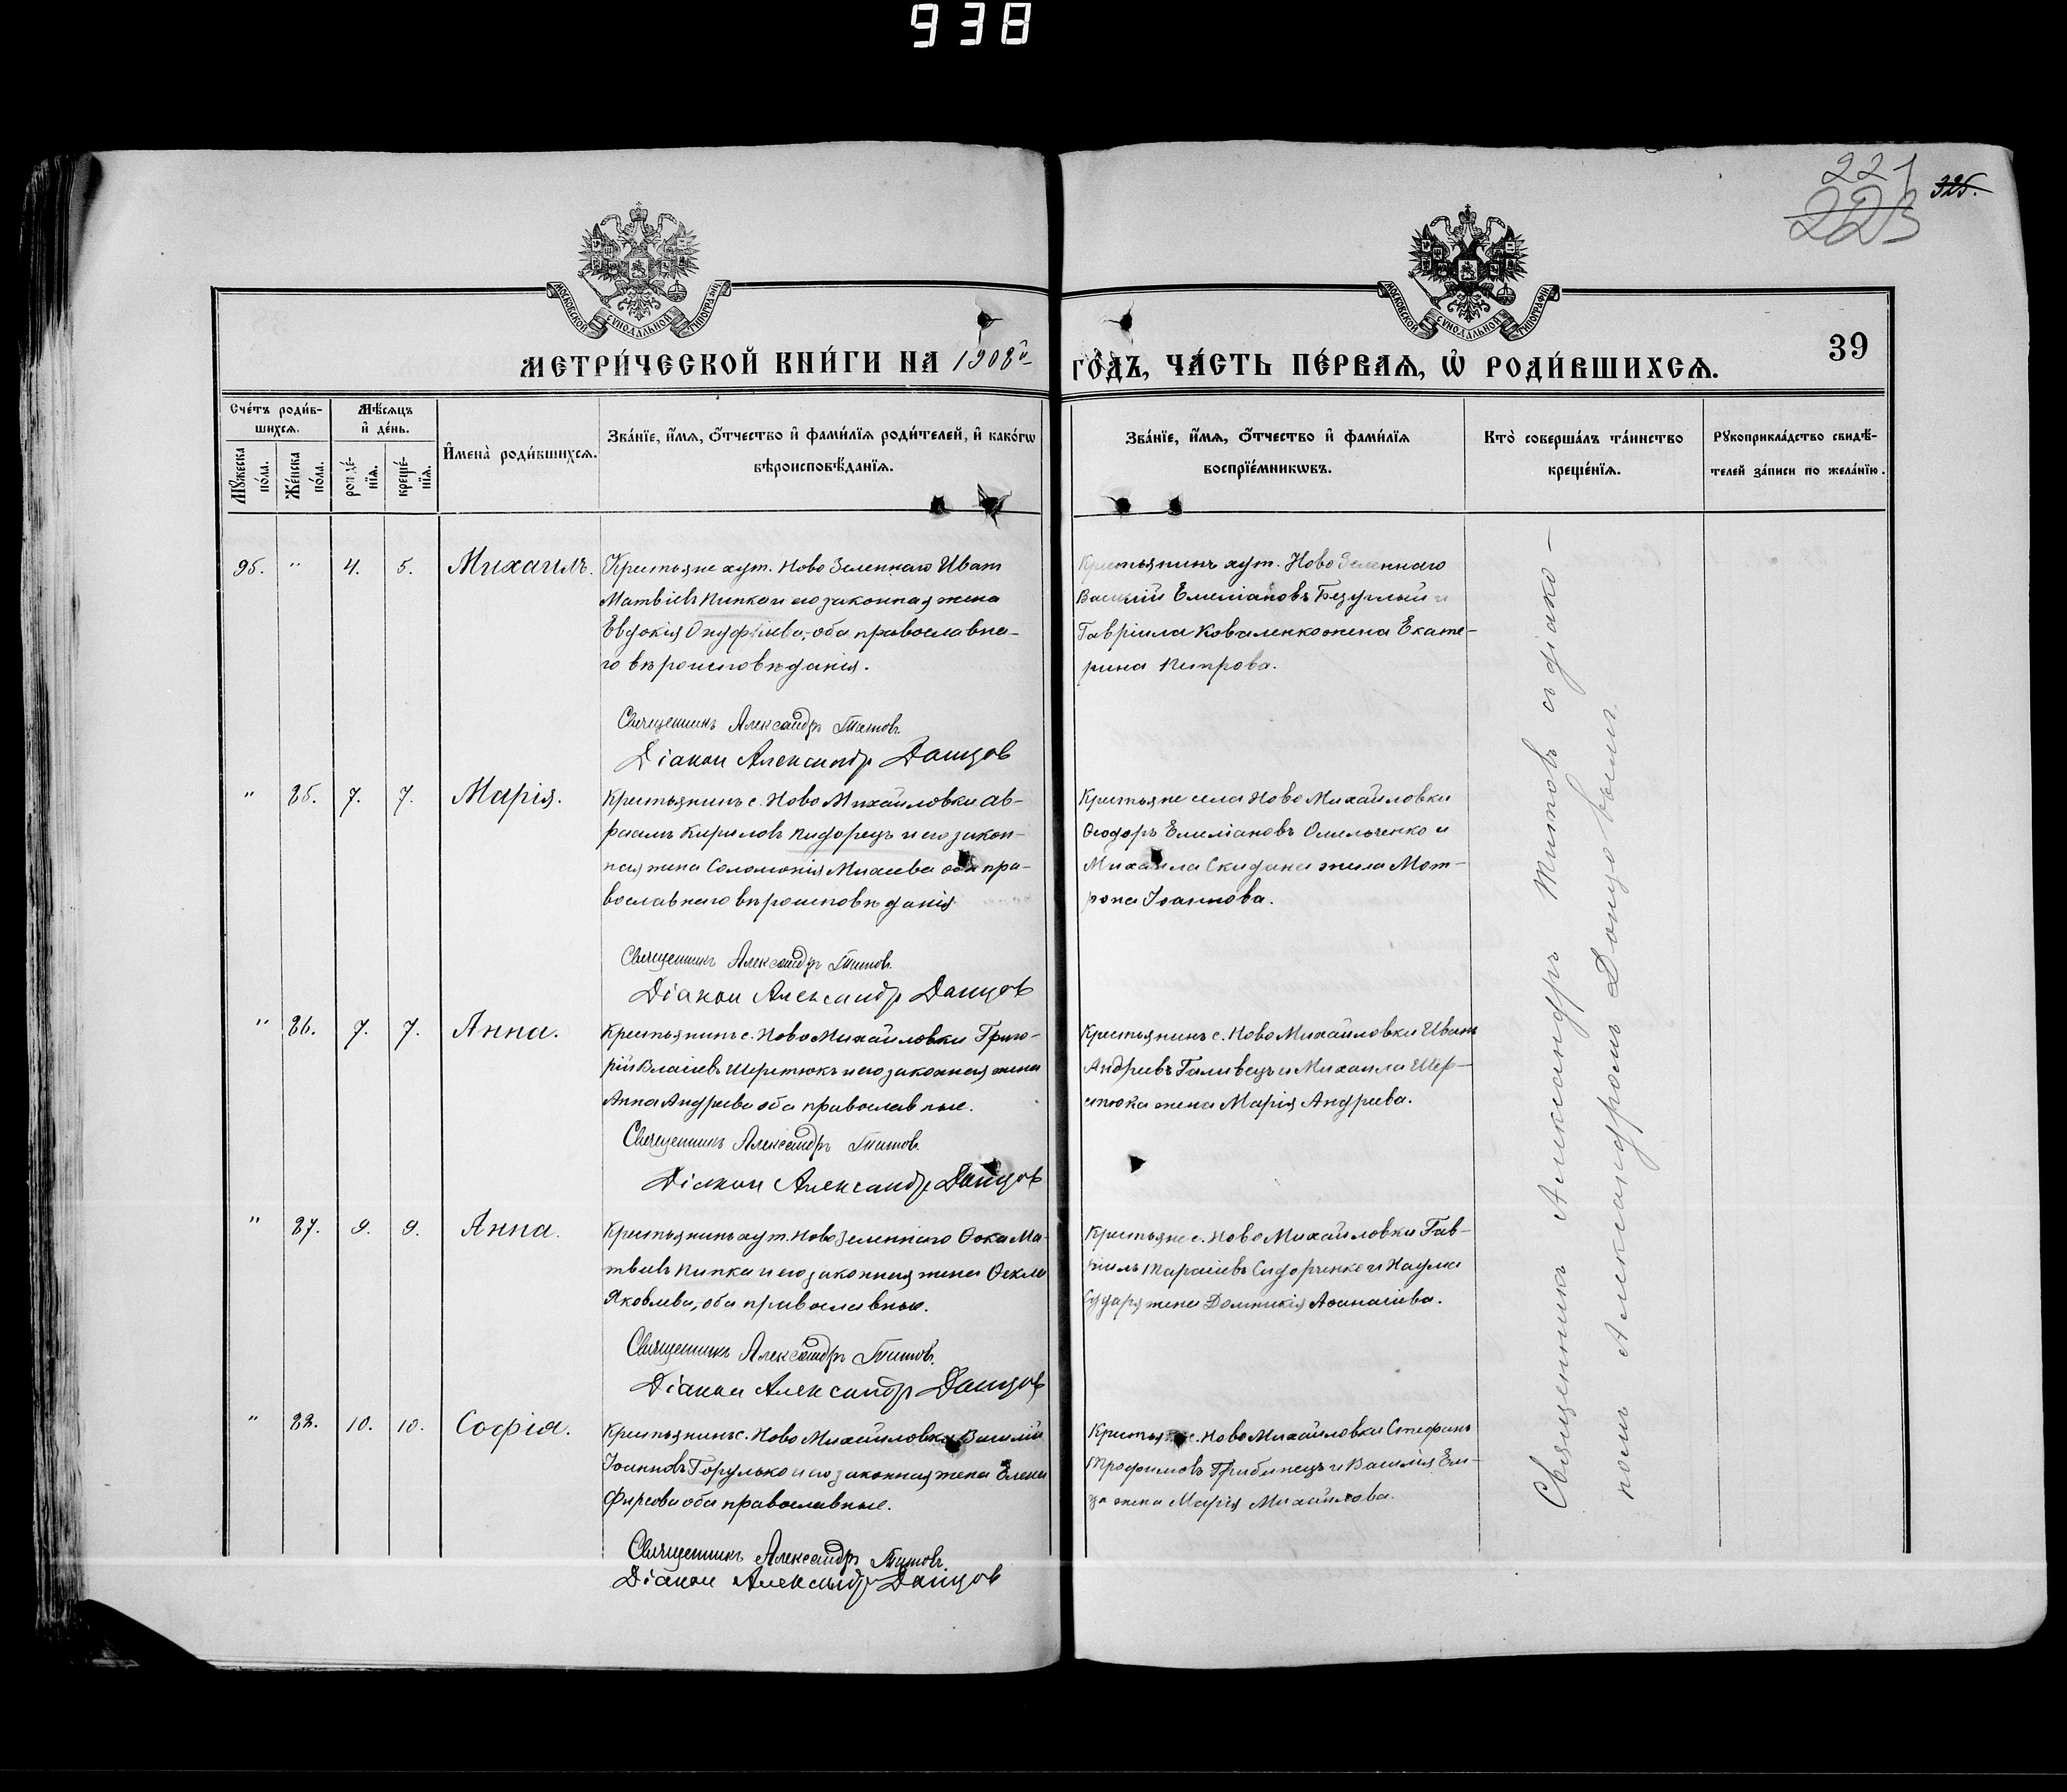 938
221
223
325.
МОСКОВСКОЙ СУНОДАЛЬНОЙ ТИПОГРАФІИ
МОСКОВСКОЙ СУНОДАЛЬНОЙ ТИПОГРАФІИ
39
МЕТРИ́ЧЕСКОЙ КНИ́ГИ НА 1908й
ГО́ДЪ, ЧА́СТЬ ПЕ́РВАѦ, Ѡ҆ РОДИ́ВШИХСѦ.
Сче́тъ роди́в-
шихсѧ.
Мѣ́сѧцъ
и҆ де́нь.
Мꙋ́жеска по́ла.
Же́нска по́ла.
рожде́-
нїѧ.
креще́-
нїѧ.
И҆мена̀ роди́вшихсѧ.
Зва́нїе, и҆́мѧ, ѻ҆́тчество и҆ фами́лїѧ роди́телей, и҆ како́гѡ
вѣроисповѣ́данїѧ.
Зва́нїе, и҆́мѧ, ѻ҆́тчество и҆ фами́лїѧ
воспрїе́мникѡвъ.
Кто̀ соверша́лъ та́инство
креще́нїѧ.
Рꙋкоприкла́дство свидѣ́-
телей за́писи по жела́нїю.
95. " 4. 5. Михаилъ.
Крестьяне хут. Ново Зеленнаго Иван
Матвіевъ Пипка и его законная жена
Евдокія Онуфріева, оба православна-
го вѣроисповѣданія.
Священникъ Александръ Титовъ.
Діакон Александр Донцов
Крестьянинъ хут. Ново Зеленнаго
Василій Емиліановъ Безуглый и
Гавріила Коваленко жена Екате-
рина Петрова.
" 85. 7. 7. Марія.
Крестьянинъ с. Ново Михайловки Ав-
раамъ Кириловъ Пидорецъ и его закон-
ная жена Соломонія Михеева оба пра-
вославнаго вѣроисповѣданія
Священникъ Александръ Титовъ.
Діакон Александр Донцов
Крестьяне села Ново Михайловки
Ѳеодоръ Емиліановъ Омельченко и
Михаила Скидана жена Мат-
рона Іоаннова.
" 86. 7. 7. Анна.
Крестьянинъ с. Ново Михайловки Григо-
рій Власіевъ Шерстюкъ и его законная жена
Анна Андреева оба православные.
Священникъ Александръ Титовъ.
Діакон Александр Донцов
Крестьянинъ с. Ново Михайловки Иванъ
Андреевъ Галивецъ и Михаила Шер-
стюка жена Марія Андреева.
" 87. 9. 9. Анна.
Крестьянинъ хут. Ново Зеленнаго Ѳока Ма-
твѣевъ Пипка и его законная жена Ѳекла
Яковлева, оба православные.
Священникъ Александръ Титовъ.
Діакон Александр Донцов
Крестьяне с. Ново Михайловки Гав-
ріилъ Тарасіевъ Сидорченко и Наума
Сударя жена Домникія Аѳанасіева.
" 88. 10. 10. Софія.
Крестьянинъ с. Ново Михайловки Василій
Іоанновъ Горулько и его законная жена Елена
Фирсова оба православные.
Священникъ Александръ Титовъ.
Діакон Александр Донцов
Крестьяне с. Ново Михайловки Стефанъ
Трофимовъ Грибинецъ и Василія
жена Марія Михайлова.
Священникъ Александръ Титовъ съ діако-
номъ Александромъ Донцовымъ.